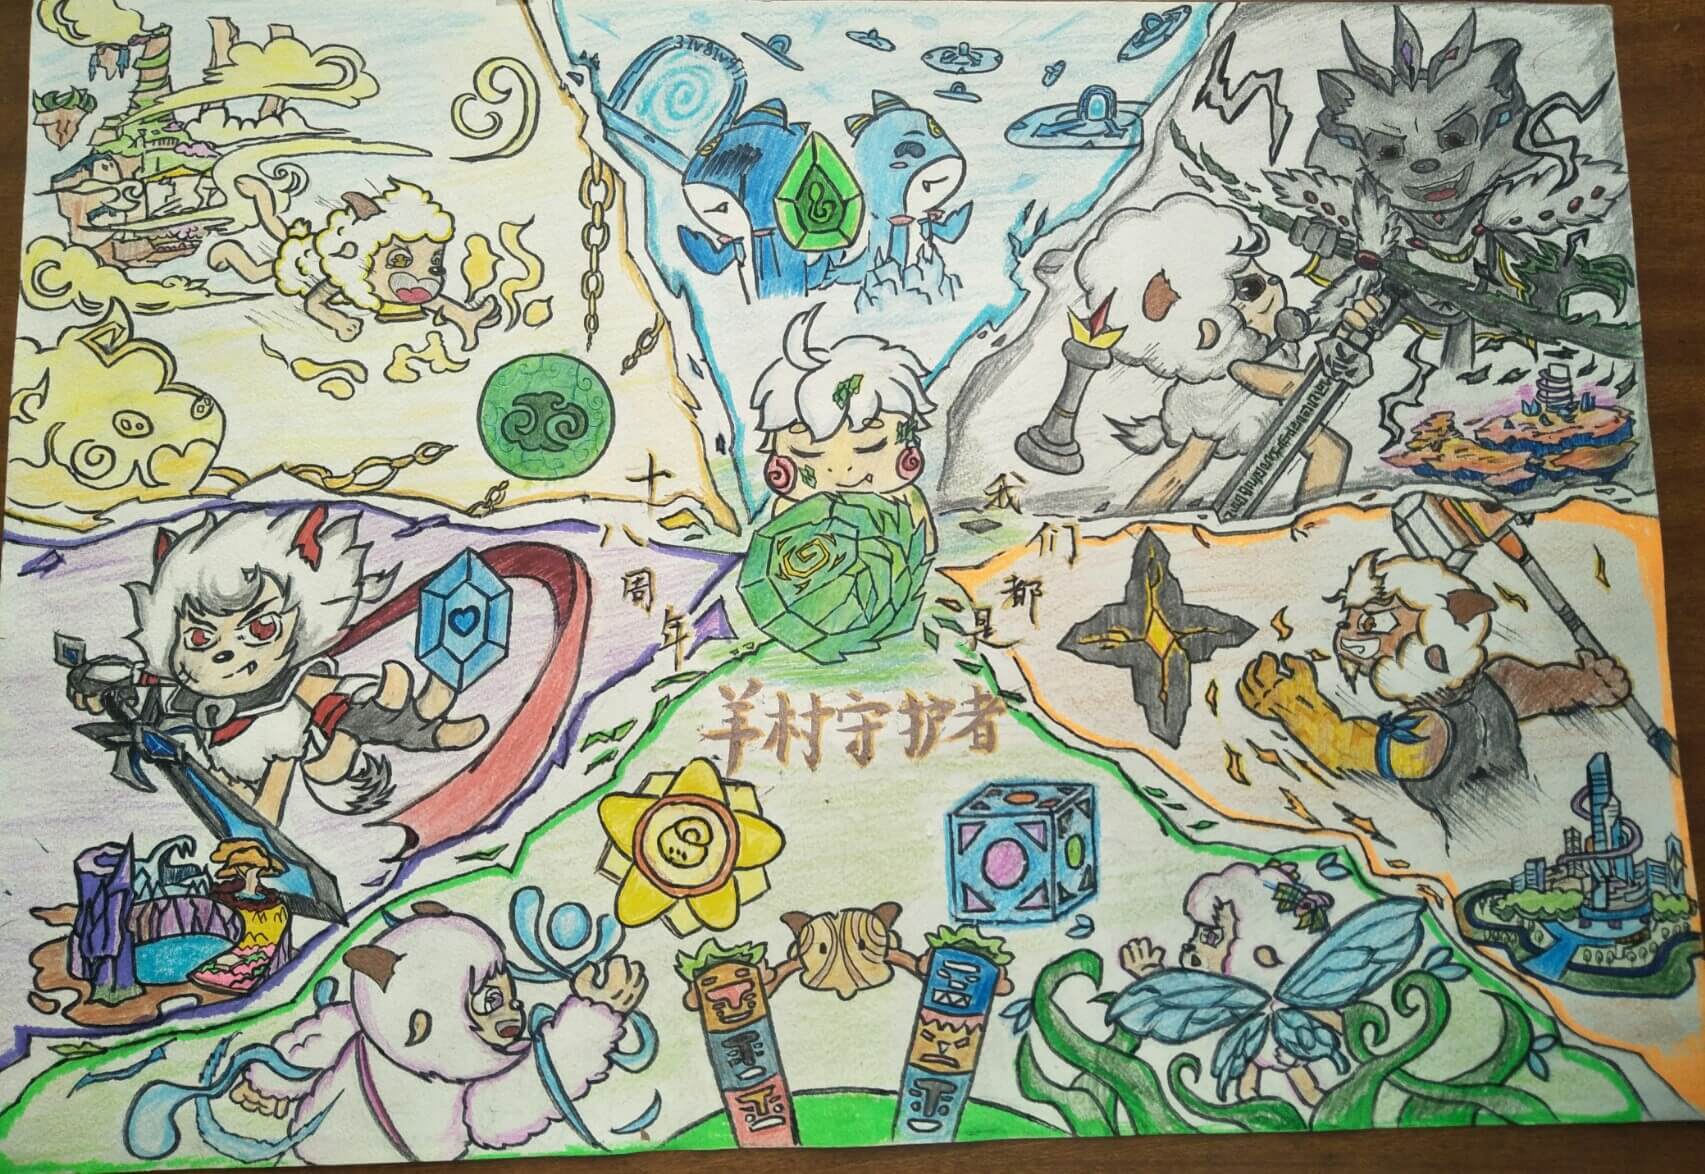 十八周年
我们都是
羊村守护者